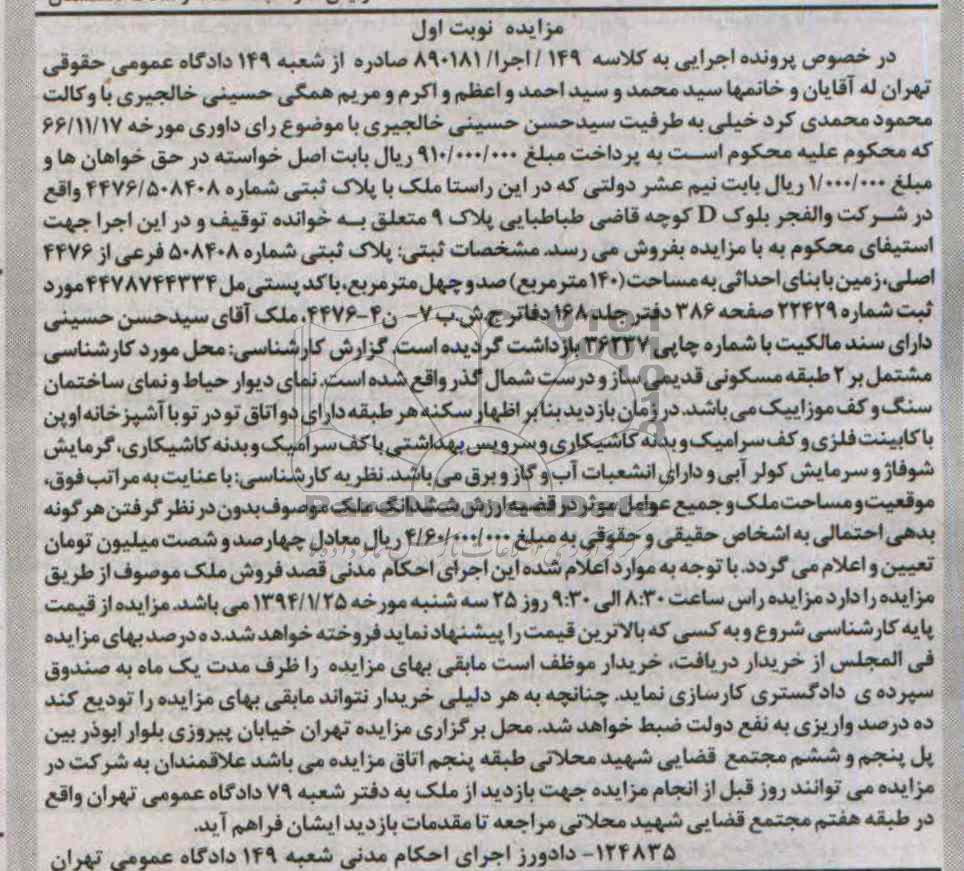 مزایده نوبت اول
در خصوص پرونده اجرایی به کلاسه ۱۴۹ /اجرا/ ۸۹۰۱۸۱ صادره از شعبه ۱۴۹ دادگاه عمومی حقوقی
تهران له آقایان و خانمها سید محمد و سید احمد و اعظم و اکرم و مریم همگی حسینی خالجیری با وکالت
محمود محمدی کرد خیلی به طرفیت سیدحسن حسینی خالجیری با موضوع رای داوری مورخه ۶۶/۱۱/۱۷
که محکوم علیه محکوم است به پرداخت مبلغ ۹۱۰/۰۰۰/۰۰۰ ریال بابت اصل خواسته در حق خواهان ها و
مبلغ ۱/۰۰۰/۰۰۰ ریال بابت نیم عشر دولتی که در این راستا ملک با پلاک ثبتی شماره ۴۴۷۶/۵۰۸۴۰۸ واقع
در شرکت والفجر بلوک D کوچه قاضی طباطبایی پلاک ۹ متعلق به خوانده توقیف و در این اجرا جهت
استیفای محکوم به با مزایده بفروش می رسد. مشخصات ثبتی: پلاک ثبتی شماره ۵۰۸۴۰۸ فرعی از ۴۴۷۶
اصلی، زمین با بنای احداثی به مساحت (۱۴۰ مترمربع) صد و چهل مترمربع، با کد پستی مل ۴۴۷۸۷۴۴۳۳۴ مورد
ثبت شماره ۲۲۴۲۹ صفحه ۳۸۶ دفتر جلد ۱۶۸ دفاتر ج.ش.ب ۷- ن۴-۴۴۷۶، ملک آقای سیدحسن حسینی
دارای سند مالکیت با شماره چاپی ۳۶۲۳۷ بازداشت گردیده است. گزارش کارشناسی: محل مورد کارشناسی
مشتمل بر ۲ طبقه مسکونی قدیمی ساز و درست شمال گذر واقع شده است. نمای دیوار حیاط و نمای ساختمان
سنگ و کف موزاییک می باشد. در زمان بازدید بنا بر اظهار سکنه هر طبقه دارای دو اتاق تو در تو با آشپزخانه اوپن
با کابینت فلزی و کف سرامیک و بدنه کاشیکاری و سرویس بهداشتی با کف سرامیک و بدنه کاشیکاری، گرمایش
شوفاژ و سرمایش کولر آبی و دارای انشعبات آب و گاز و برق می باشد. نظریه کارشناسی: با عنایت به مراتب فوق،
موقعیت و مساحت ملک و جمیع عوامل موثر در قضیه ارزش ششدانگ ملک موصوف بدون در نظر گرفتن هر گونه
بدهی احتمالی به اشخاص حقیقی و حقوقی به مبلغ ۴/۶۰۰/۰۰۰/۰۰۰ ریال معادل چهارصد و شصت میلیون تومان
تعیین و اعلام می گردد. با توجه به موارد اعلام شده این اجرای احکام مدنی قصد فروش ملک موصوف از طریق
مزایده را دارد مزایده راس ساعت ۸:۳۰ الی ۹:۳۰ روز ۲۵ سه شنبه مورخه ۱۳۹۴/۱/۲۵ می باشد. مزایده از قیمت
پایه کارشناسی شروع و به کسی که بالاترین قیمت را پیشنهاد نماید فروخته خواهد شد. ده درصد بهای مزایده
فی المجلس از خریدار دریافت، خریدار موظف است مابقی بهای مزایده را ظرف مدت یک ماه به صندوق
سپرده ی دادگستری کارسازی نماید. چنانچه به هر دلیلی خریدار نتواند مابقی بهای مزایده را تودیع کند
ده درصد واریزی به نفع دولت ضبط خواهد شد. محل برگزاری مزایده تهران خیابان پیروزی بلوار ابوذر بین
پل پنجم و ششم مجتمع قضایی شهید محلاتی طبقه پنجم اتاق مزایده می باشد علاقمندان به شرکت در
مزایده می توانند روز قبل از انجام مزایده جهت بازدید از ملک به دفتر شعبه ۷۹ دادگاه عمومی تهران واقع
در طبقه هفتم مجتمع قضایی شهید محلاتی مراجعه تا مقدمات بازدید ایشان فراهم آید.
۱۲۴۸۳۵- دادورز اجرای احکام مدنی شعبه ۱۴۹ دادگاه عمومی تهران